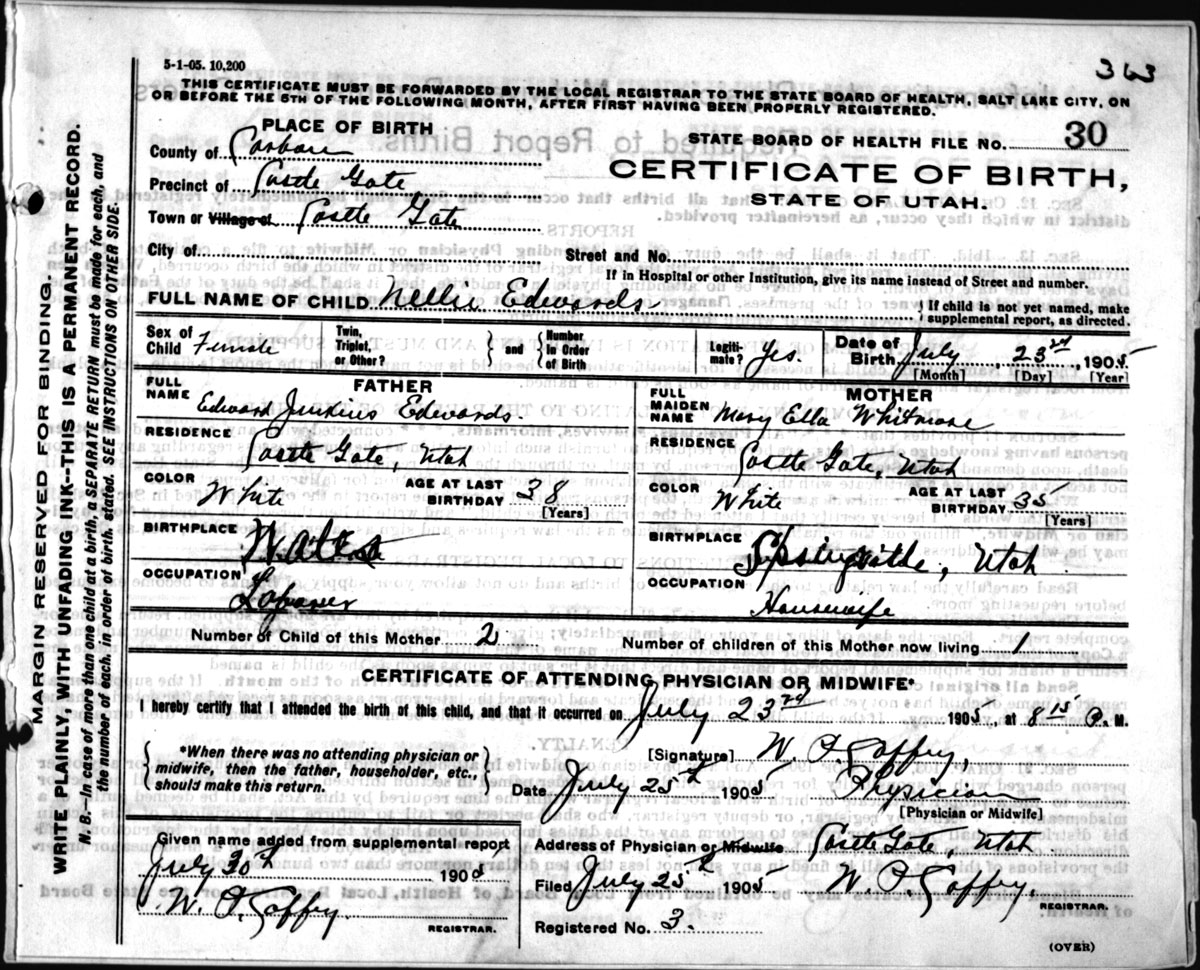 5-1-05. 10,200
363
THIS CERTIFICATE MUST BE FORWARDED BY THE LOCAL REGISTRAR TO THE STATE BOARD OF HEALTH, SALT LAKE CITY, ON
OR BEFORE THE 5TH OF THE FOLLOWING MONTH, AFTER FIRST HAVING BEEN PROPERLY REGISTERED.
PLACE OF BIRTH
STATE BOARD OF HEALTH FILE NO. 30
County of Carbon
CERTIFICATE OF BIRTH,
Precinct of Castle Gate
STATE OF UTAH.
Town or Village of Castle Gate
City of
Street and No.
If in Hospital or other Institution, give its name instead of Street and number.
FULL NAME OF CHILD Nellie Edwards
If child is not yet named, make
supplemental report, as directed.
Sex of Child Female
Twin, Triplet, or Other?
and
Number in Order of Birth
Legiti-mate? Yes.
Date of Birth July 23rd 1905
[Month] [Day] [Year]
FATHER
FULL NAME Edward Jenkins Edwards
RESIDENCE Castle Gate, Utah
COLOR White
AGE AT LAST BIRTHDAY 38
[Years]
BIRTHPLACE Wales
OCCUPATION Laborer
MOTHER
FULL MAIDEN NAME Mary Ella Whitmore
RESIDENCE Castle Gate, Utah
COLOR White
AGE AT LAST BIRTHDAY 35
[Years]
BIRTHPLACE Utah
OCCUPATION Housewife
Number of Child of this Mother 2
Number of children of this Mother now living 1
CERTIFICATE OF ATTENDING PHYSICIAN OR MIDWIFE*
I hereby certify that I attended the birth of this child, and that it occurred on July 23rd 1905, at 8 15 P. M.
*When there was no attending physician or
midwife, then the father, householder, etc.,
should make this return.
[Signature] W.
Date July 25th 1905 Physician
[Physician or Midwife]
Given name added from supplemental report
July 30th 1905
W.
REGISTRAR.
Address of Physician or Midwife Castle Gate, Utah
Filed July 25th 1905 W.
REGISTRAR.
Registered No. 3.
(OVER)
MARGIN RESERVED FOR BINDING.
WRITE PLAINLY, WITH UNFADING INK--THIS IS A PERMANENT RECORD.
N. B.--In case of more than one child at a birth, a SEPARATE RETURN must be made for each, and
the number of each, in order of birth, stated. SEE INSTRUCTIONS ON OTHER SIDE.